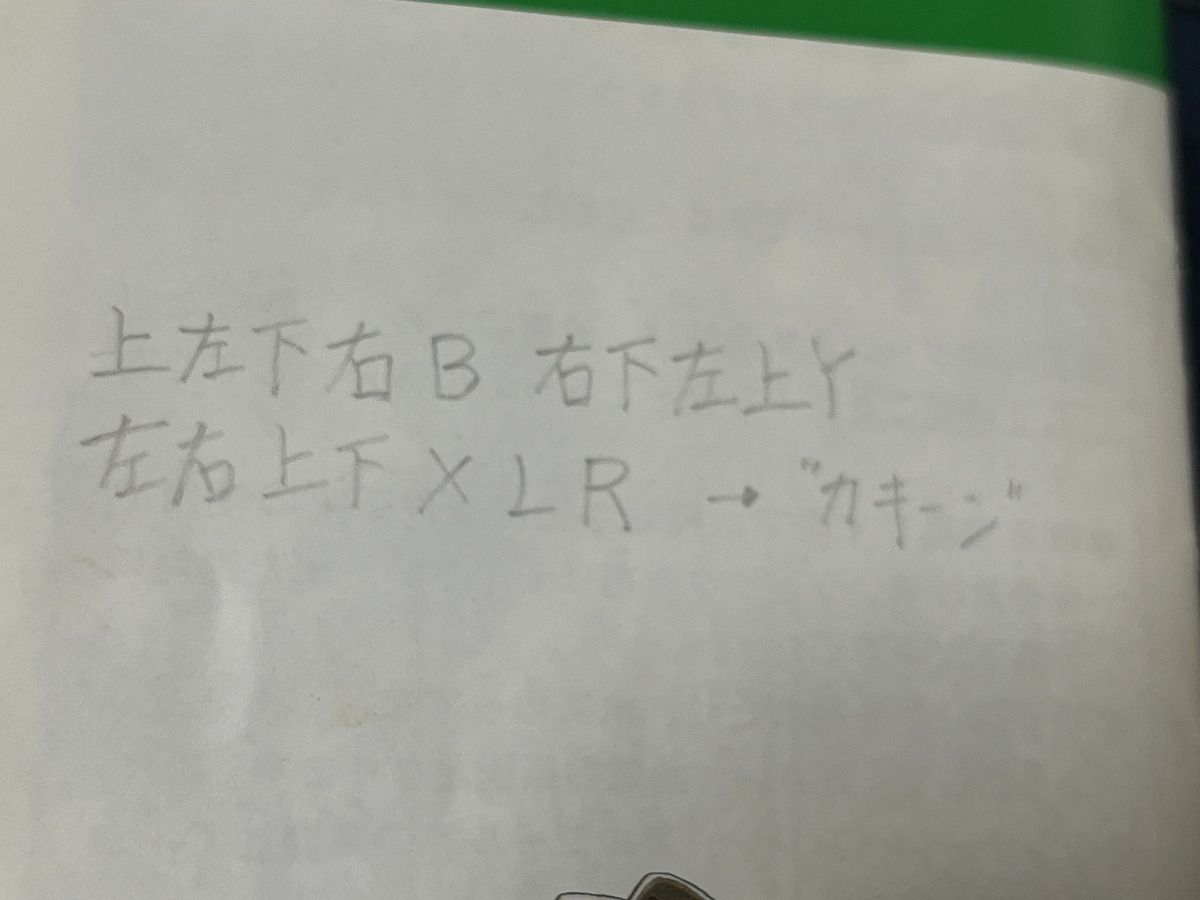 上左下右B 右下左上Y
左右上下XLR → "カキーン"